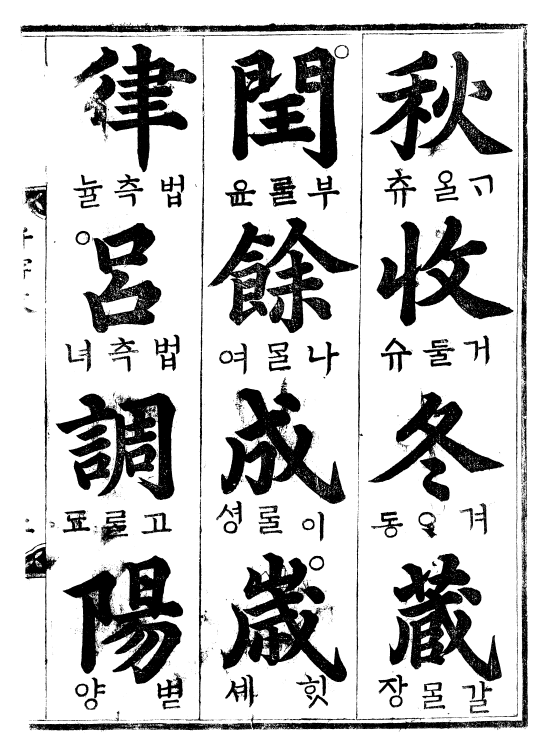 秋
ᄀᆞ올 츄
收
거둘 슈
冬
겨ᄋᆞᆯ 동
藏
갈몰 장
閏
부룰 윤
餘
나몰 여
成
이롤 셩
歲
힛 셰
律
법측 뉼
呂
법측 녀
調
고롤 됴
陽
볃 양